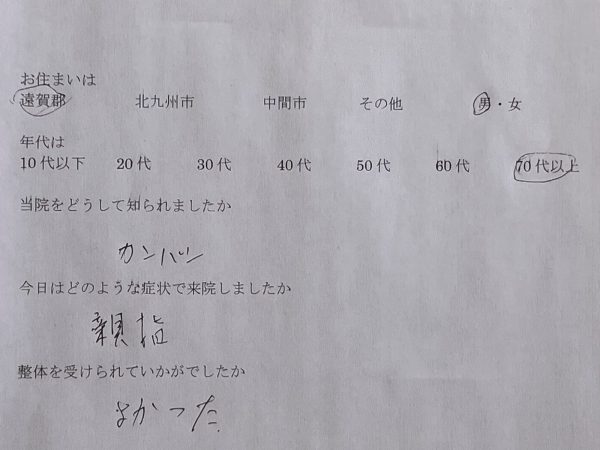 お住まいは
遠賀郡 北九州市 中間市 その他 男・女
年代は
10代以下 20代 30代 40代 50代 60代 70代以上
当院をどうして知られましたか
カンバン
今日はどのような症状で来院しましたか
親指
整体を受けられていかがでしたか
よかった